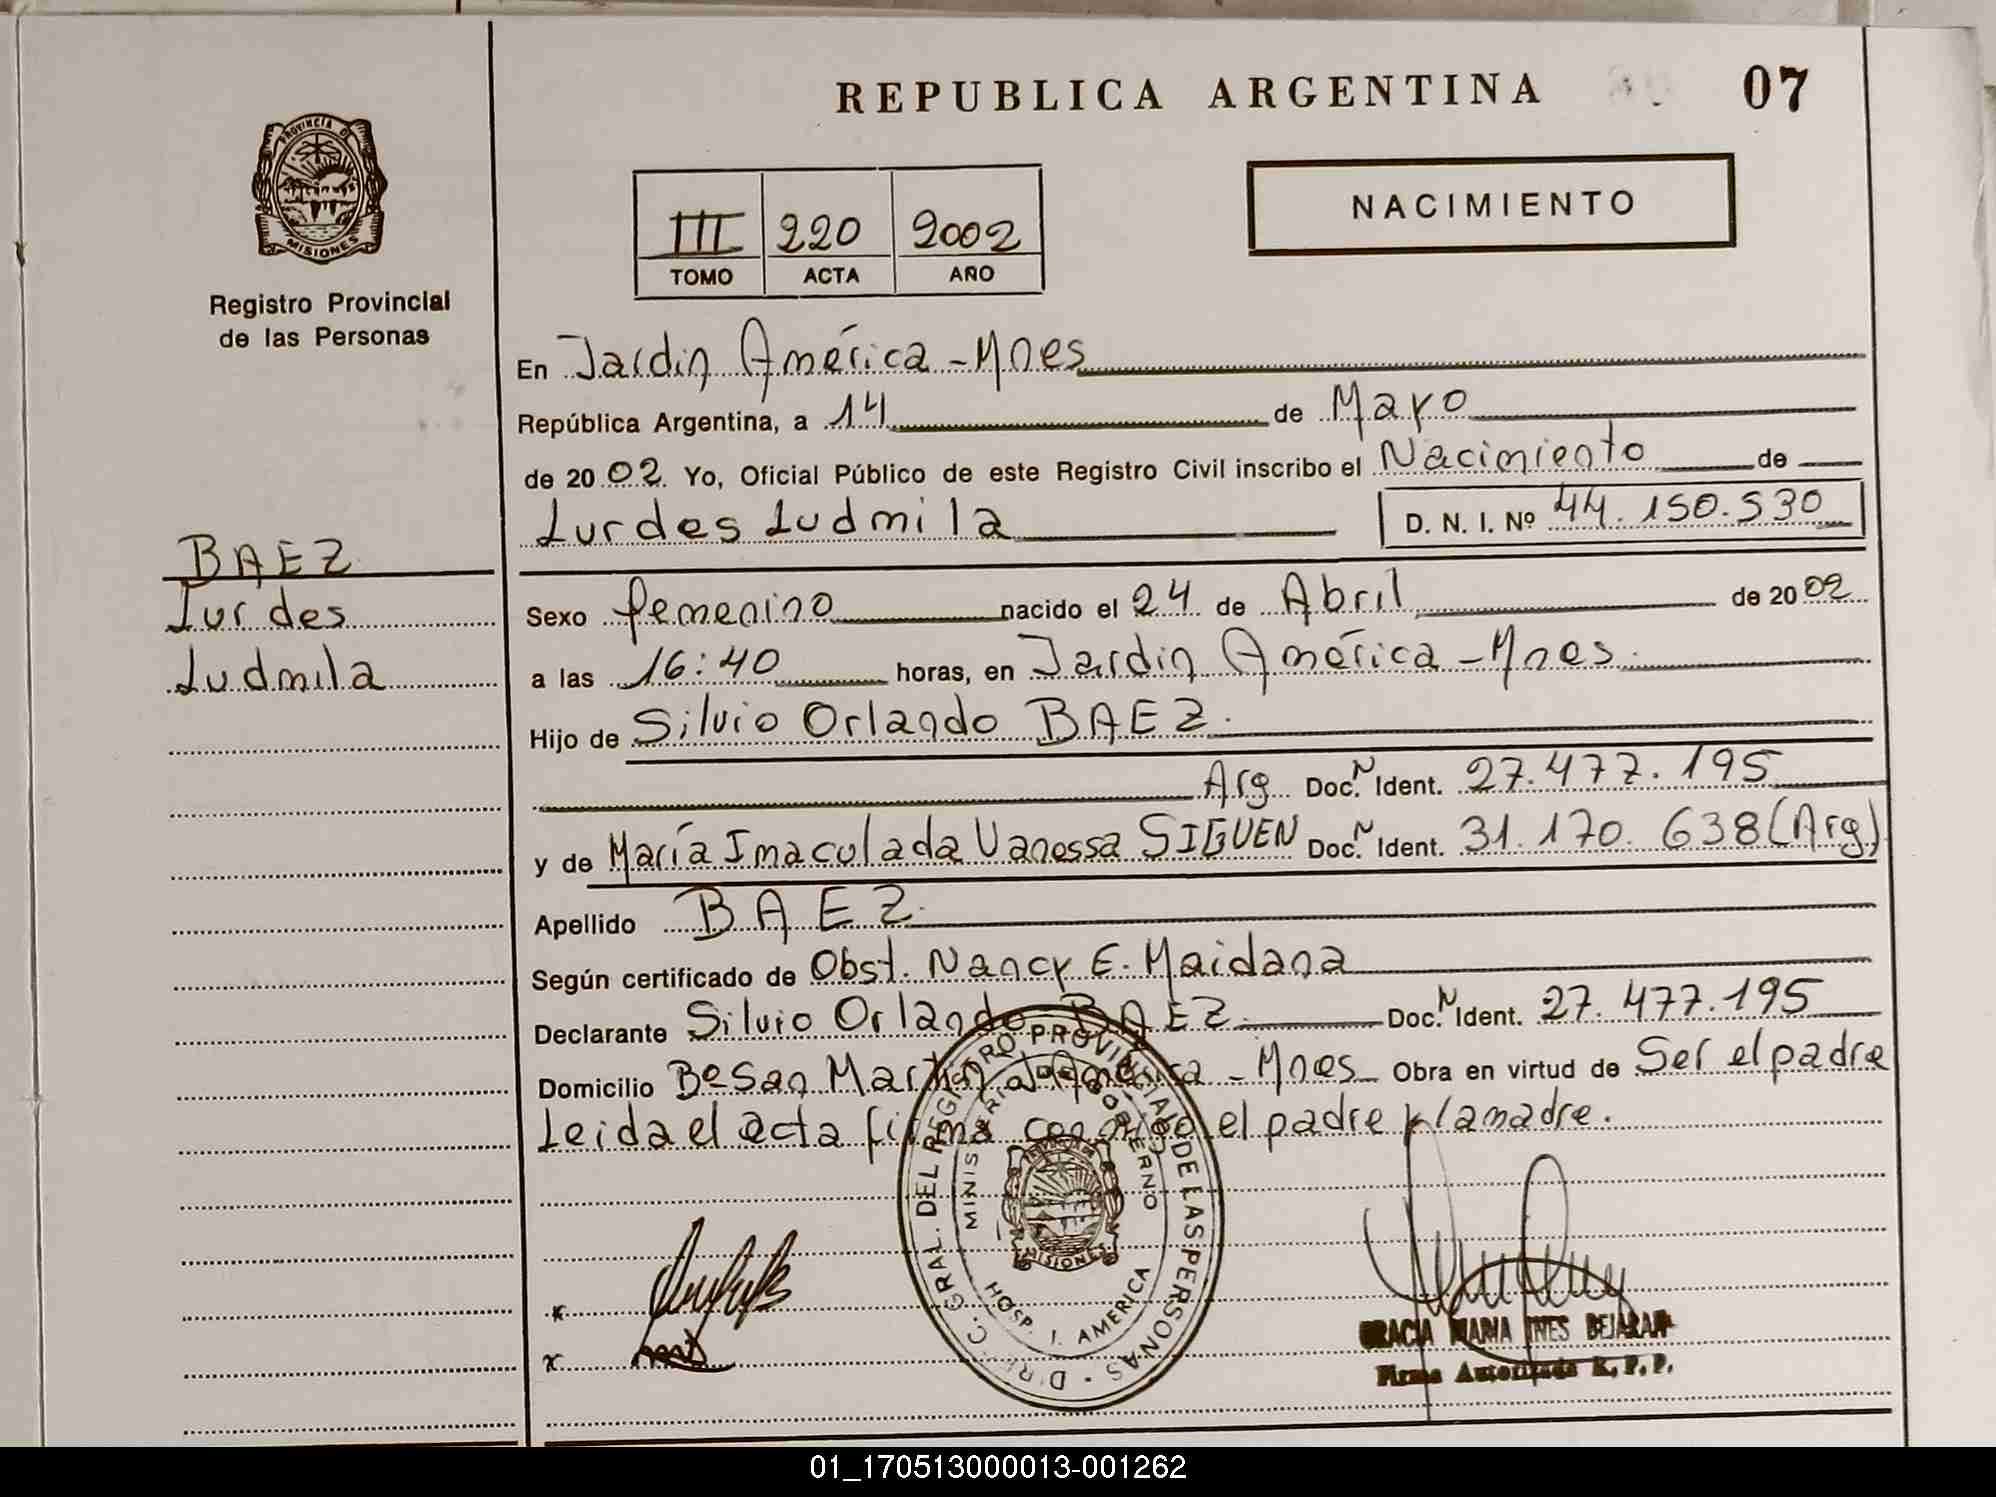 REPUBLICA ARGENTINA 07
PROVINCIA DE
MISIONES
Registro Provincial
de las Personas
III 220 2002
TOMO ACTA AÑO
NACIMIENTO
En Jardin América - Mnes
República Argentina, a 14 de Mayo
de 2002. Yo, Oficial Público de este Registro Civil inscribo el Nacimiento de
Lurdes Ludmila D. N. I. Nº 44.150.530
BAEZ
Lurdes
Ludmila
Sexo femenino nacido el 24 de Abril de 2002
a las 16:40 horas, en Jardin América - Mnes.
Hijo de Silvio Orlando BAEZ.
Arg Doc. N Ident. 27.477.195
y de María Imaculada Vanessa SIGUEN Doc. N Ident. 31.170.638 (Arg)
Apellido BAEZ.
Según certificado de Obst. Nancy E. Maidana
Declarante Silvio Orlando BAEZ Doc. N Ident. 27.477.195
Domicilio Bº San Martin J. América - Mnes Obra en virtud de Ser el padre
Leida el acta firma conmigo el padre y la madre.
DIREC. GRAL. DEL REGISTRO PROVINCIAL DE LAS PERSONAS
MINISTERIO DE GOBIERNO
PROVINCIA DE
MISIONES
HOSP. J. AMERICA
x
x
GRACIA MARIA INES BEJARAN
Firma Autorizada R.P.P.
01_170513000013-001262